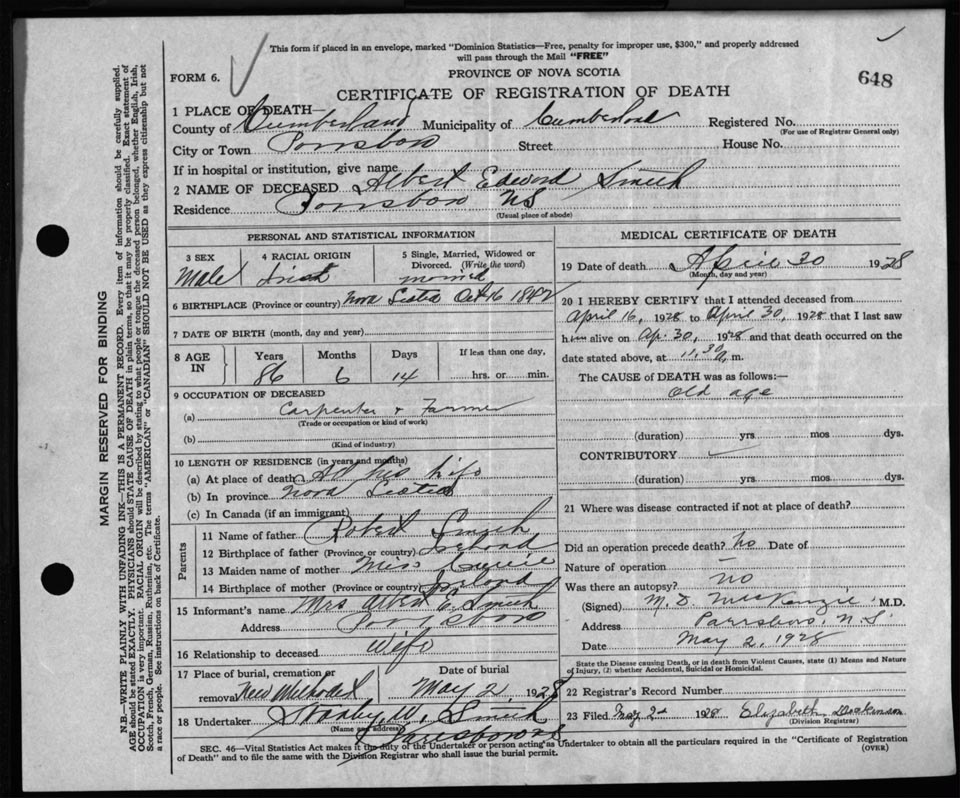 This form if placed in an envelope, marked "Dominion Statistics—Free, penalty for improper use, $300," and properly addressed
will pass through the Mail "FREE"
FORM 6.
PROVINCE OF NOVA SCOTIA
648
CERTIFICATE OF REGISTRATION OF DEATH
1 PLACE OF DEATH—
County of Cumberland Municipality of Cumberland Registered No.
(For use of Registrar General only)
City or Town Parrsboro Street House No.
If in hospital or institution, give name
2 NAME OF DECEASED Albert Edward Smith
Residence Parrsboro NS
(Usual place of abode)
PERSONAL AND STATISTICAL INFORMATION
3 SEX 4 RACIAL ORIGIN 5 Single, Married, Widowed or
Divorced. (Write the word)
Male Irish married
6 BIRTHPLACE (Province or country) Nova Scotia Oct 16 1842
7 DATE OF BIRTH (month, day and year)
8 AGE IN Years Months Days If less than one day,
86 6 14 hrs. or min.
9 OCCUPATION OF DECEASED
(a) Carpenter & Farmer
(Trade or occupation or kind of work)
(b)
(Kind of industry)
10 LENGTH OF RESIDENCE (in years and months)
(a) At place of death All his life
(b) In province Nova Scotia
(c) In Canada (if an immigrant)
Parents
11 Name of father Robert Smith
12 Birthplace of father (Province or country) Ireland
13 Maiden name of mother Miss
14 Birthplace of mother (Province or country) Ireland
15 Informant's name Mrs Albert E. Smith
Address Parrsboro
16 Relationship to deceased Wife
17 Place of burial, cremation or Date of burial
removal New Methodist May 2, 1928
18 Undertaker Stanley W. Smith
(Name and address) Parrsboro NS
MEDICAL CERTIFICATE OF DEATH
19 Date of death April 30 1928
(Month, day and year)
20 I HEREBY CERTIFY that I attended deceased from
April 16, 1928 to April 30, 1928 that I last saw
him alive on Ap. 30, 1928 and that death occurred on the
date stated above, at 11.30 m.
The CAUSE OF DEATH was as follows:—
Old age
(duration) yrs mos dys.
CONTRIBUTORY
(duration) yrs mos dys.
21 Where was disease contracted if not at place of death?
Did an operation precede death? No Date of
Nature of operation —
Was there an autopsy? no
(Signed) M. D. McKenzie M.D.
Address Parrsboro, N.S.
Date May 2, 1928
State the Disease causing Death, or in death from Violent Causes, state (1) Means and Nature
of Injury, (2) whether Accidental, Suicidal or Homicidal.
22 Registrar's Record Number
23 Filed May 2nd 1928 Elizabeth
(Division Registrar)
SEC. 46—Vital Statistics Act makes it the duty of the Undertaker or person acting as Undertaker to obtain all the particulars required in the "Certificate of Registration
of Death" and to file the same with the Division Registrar who shall issue the burial permit. (OVER)
MARGIN RESERVED FOR BINDING
N.B.—WRITE PLAINLY WITH UNFADING INK—THIS IS A PERMANENT RECORD. Every item of information should be carefully supplied.
AGE should be stated EXACTLY. PHYSICIANS should STATE CAUSE OF DEATH in plain terms, so that it may be properly classified. Exact statement of
OCCUPATION is very important. RACIAL ORIGIN will be described by stating to what people or tongue the deceased person belonged, whether English, Irish,
Scotch, French, German, Russian, Ruthenian, etc. The terms "AMERICAN" or "CANADIAN" SHOULD NOT BE USED as they express citizenship but not
a race or people. See instructions on back of Certificate.